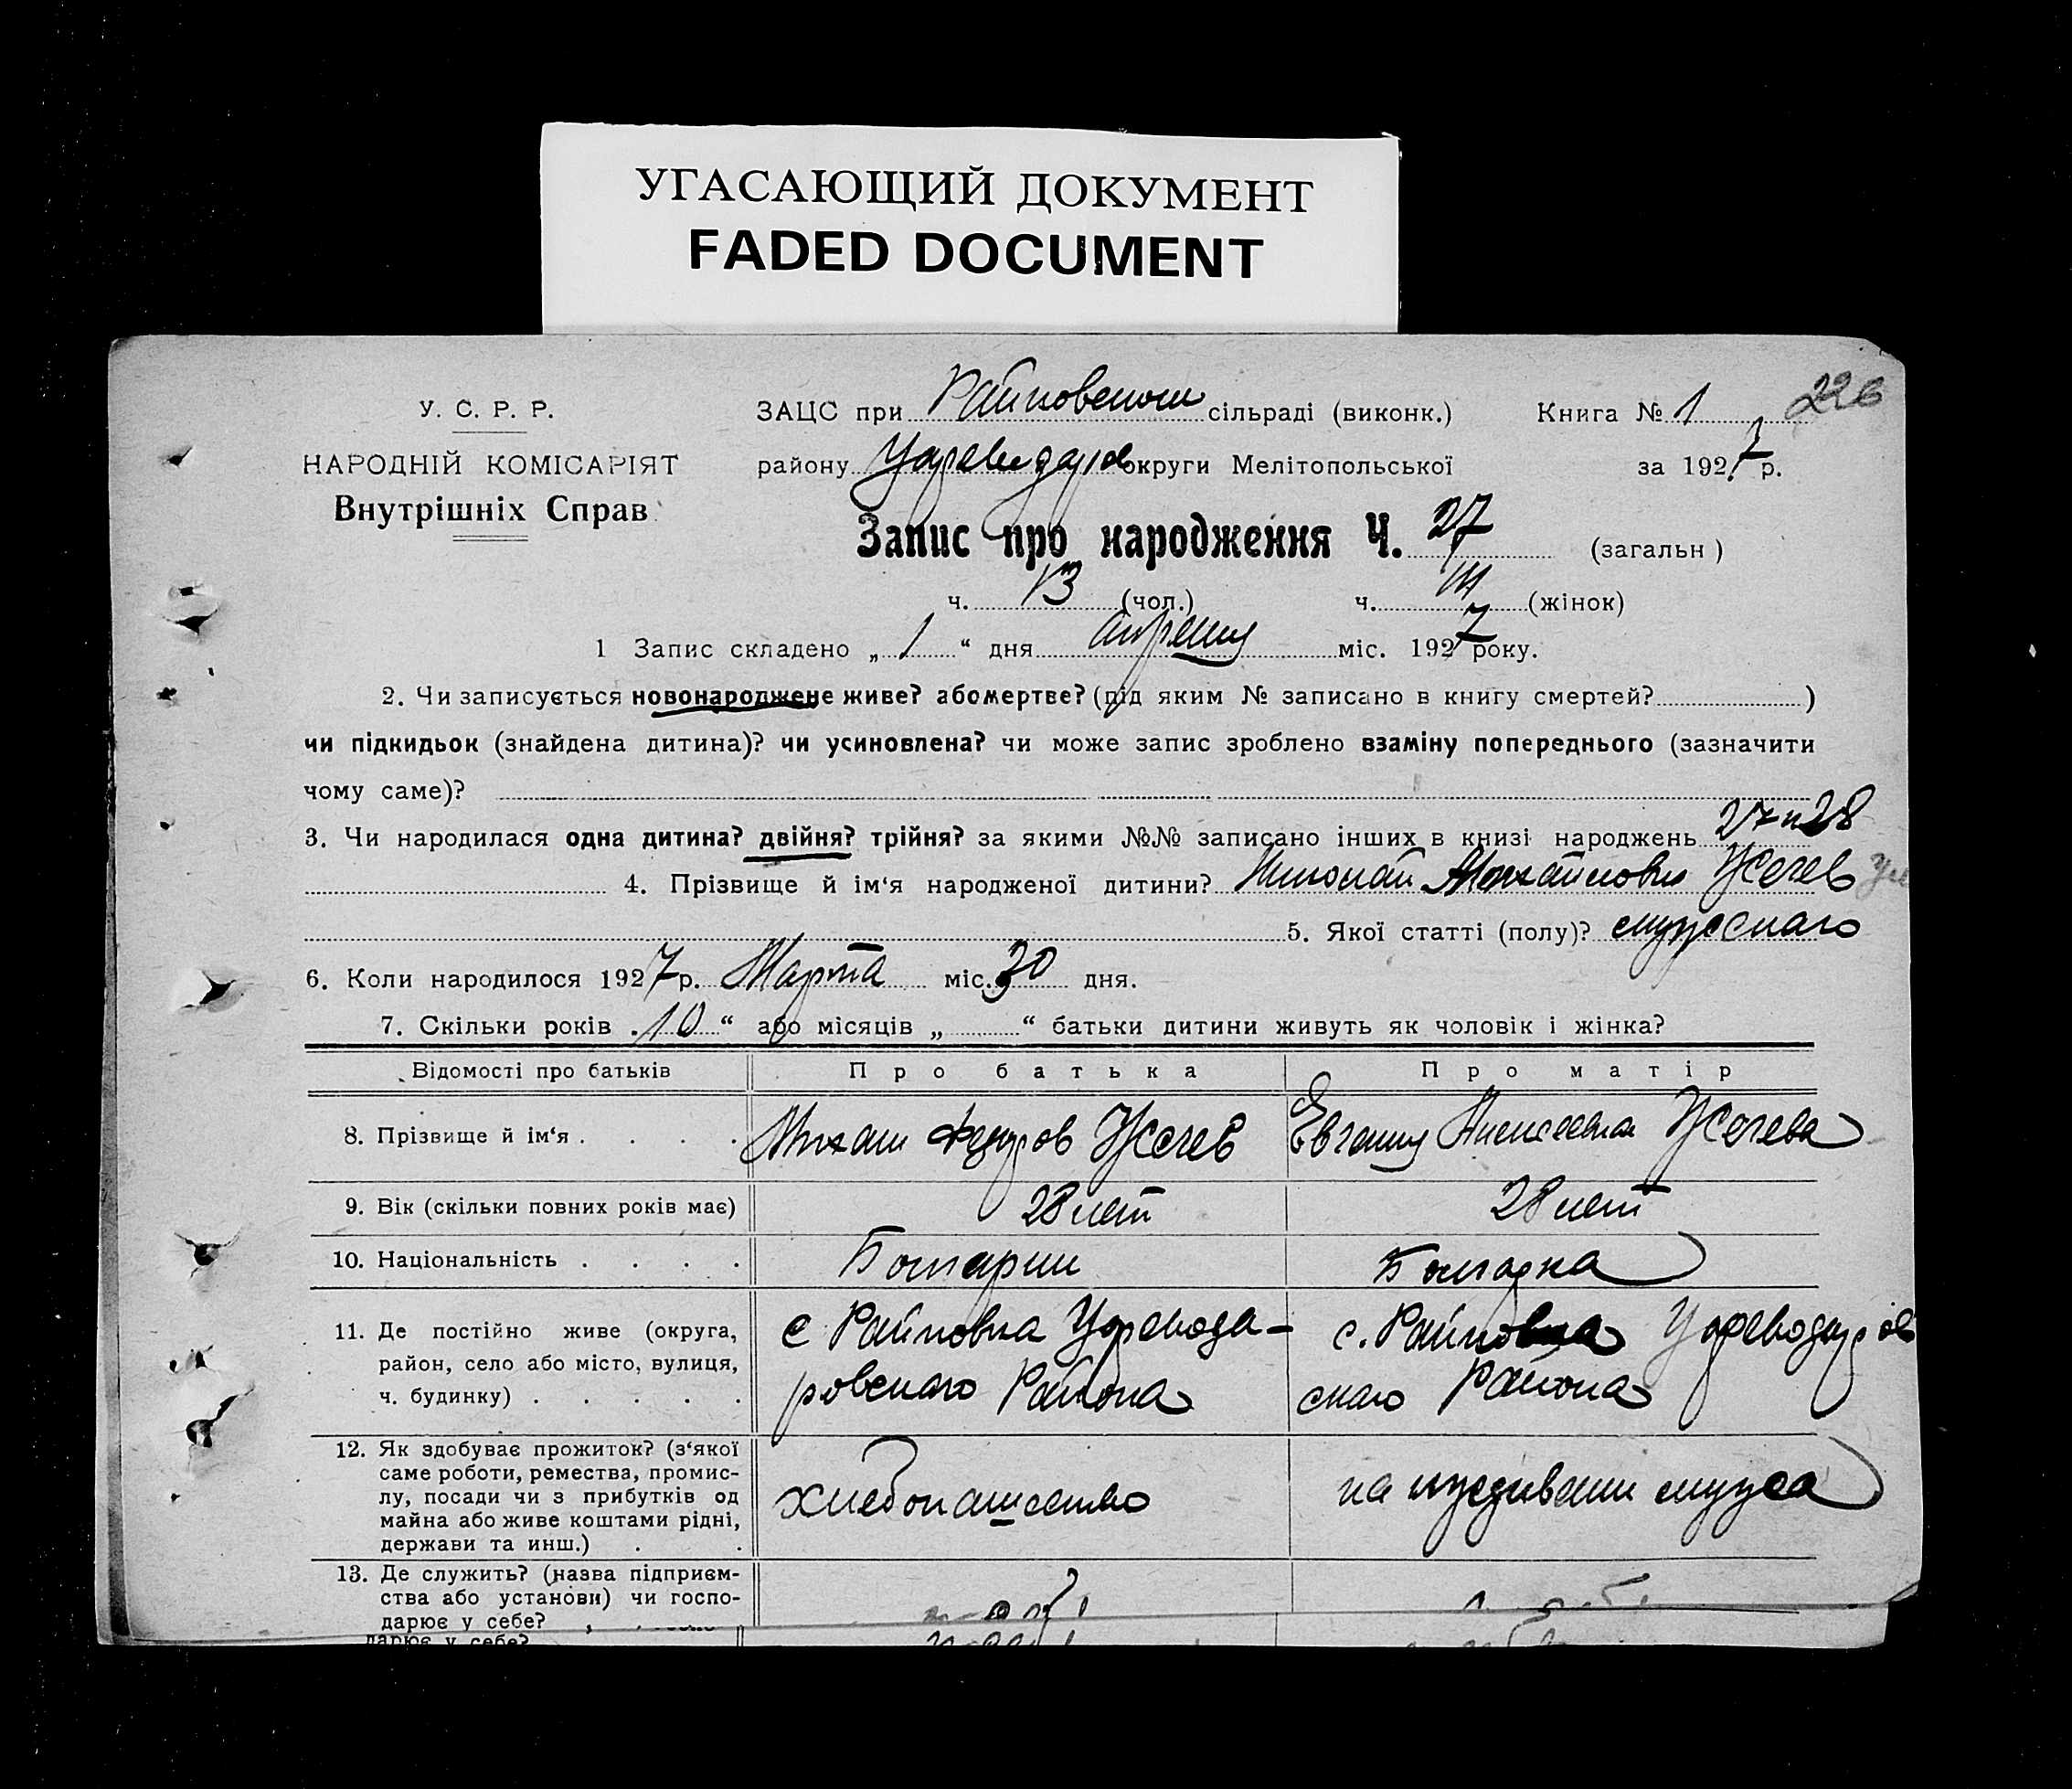 УГАСАЮЩИЙ ДОКУМЕНТ
FADED DOCUMENT
226
У. С. Р. Р.
НАРОДНІЙ КОМІСАРІЯТ
Внутрішніх Справ
ЗАЦС при Райновском сільраді (виконк.) Книга № 1
району Цареводаров округи Мелітопольської за 1927 р.
Запис про народження Ч. 27 (загальн)
ч. 13 (чол.) ч. (жінок)
1 Запис складено „ 1 “ дня апреля міс. 1927 року.
2. Чи записується новонароджене живе? або мертве? (під яким № записано в книгу смертей? )
чи підкидьок (знайдена дитина)? чи усиновлена? чи може запис зроблено взаміну попереднього (зазначити
чому саме)?
3. Чи народилася одна дитина? двійня? трійня? за якими №№ записано інших в книзі народжень 27 и 28
4. Прізвище й ім‘я народженої дитини? Николай Михайлович Жечев
5. Якої статті (полу)? мужскаго
6. Коли народилося 1927 р. Марта міс. 30 дня.
7. Скільки років „ 10 “ або місяців „ “ батьки дитини живуть як чоловік і жінка?
Відомості про батьків Про батька Про матір
8. Прізвище й ім‘я . . . . Михаил Федоров Жечев Евгения Алексеевна Жечева
9. Вік (скільки повних років має) 28 лет 28 лет
10. Національність . . . . Болгарин Болгарка
11. Де постійно живе (округа,
район, село або місто, вулиця,
ч. будинку) . . . . .
с Райновка Цареводаровскаго Района
с. Райновка Цареводаровскаго Района
12. Як здобуває прожиток? (з‘якої
саме роботи, ремества, промис-
лу, посади чи з прибутків од
майна або живе коштами рідні,
держави та инш.) . .
хлебопашество
на иждивении мужа
13. Де служить? (назва підприєм-
ства або установи) чи госпо-
дарює у себе?
дарює у себе?